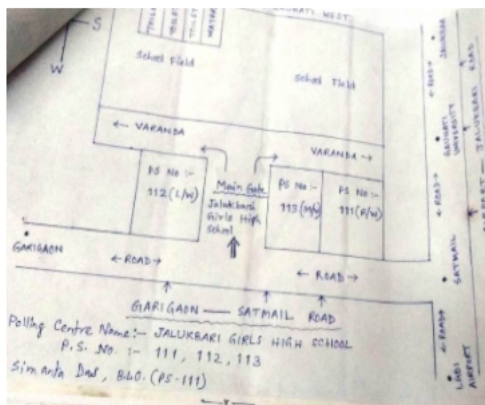 WEST
S
W
TOILET
TOILET
TOILET
WATER
School Field
School Field
← VARANDA
VARANDA →
PS No :-
112 (L/W)
Main Gate
Jalukbari
Girls High
School
PS No :-
113 (M/W)
PS No :-
111 (R/W)
GARIGAON
← ROAD →
← ROAD →
GARIGAON — SATMAIL ROAD
Polling Centre Name:- JALUKBARI GIRLS HIGH SCHOOL
P.S. No. :- 111, 112, 113
Simanta Das, B.L.O. (PS-111)
← ROAD →
JALUKBARI
GAUHATI
UNIVERSITY
← ROAD →
SATMAIL
← ROAD →
LGBI
AIRPORT
AIRPORT — JALUKBARI ROAD